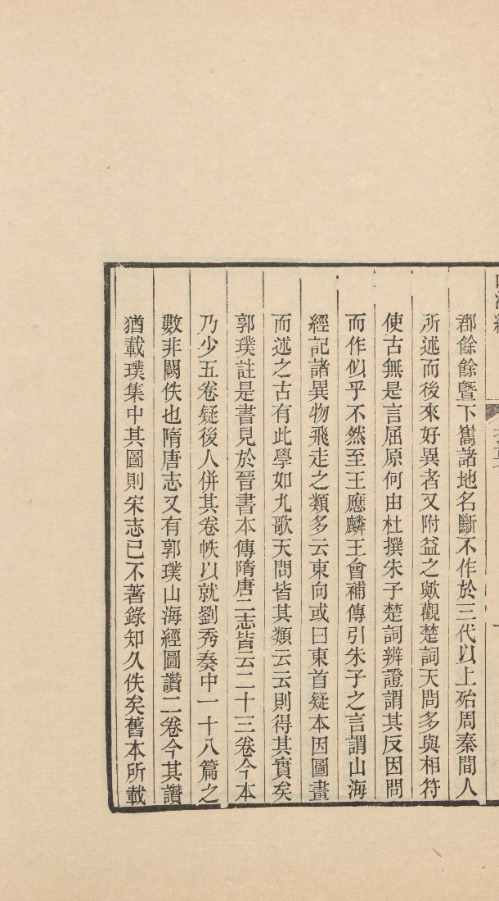 郡餘餘曁下巂諸地名斷不作於三代以上殆周秦間人
所述而後來好異者又附益之歟觀楚詞天問多與相符
使古無是言屈原何由杜撰朱子楚詞辨證謂其反因問
而作似乎不然至王應麟王會補傳引朱子之言謂山海
經記諸異物飛走之類多云東向或曰東首疑本因圖畫
而述之古有此學如九歌天問皆其類云云則得其實矣
郭璞註是書見於晉書本傳隋唐二志皆云二十三卷今本
乃少五卷疑後人併其卷帙以就劉秀奏中一十八篇之
數非闕佚也隋唐志又有郭璞山海經圖讚二卷今其讚
猶載璞集中其圖則宋志已不著錄知久佚矣舊本所載